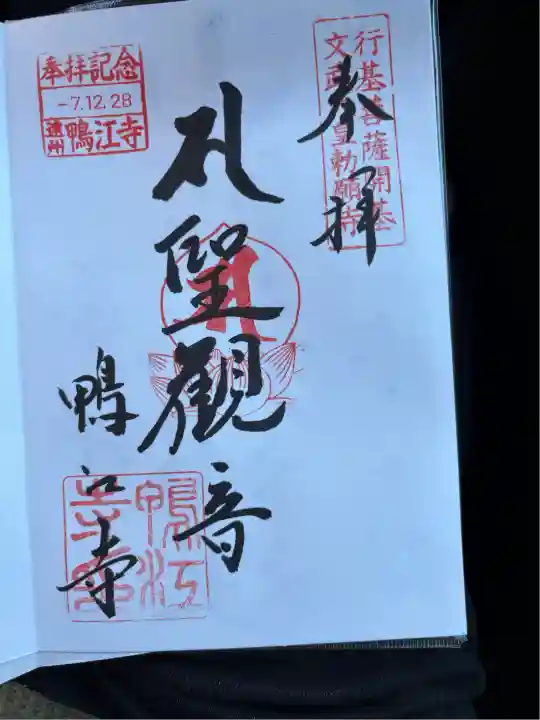 行基菩薩開基
文武天皇勅願寺
奉拝
聖観音
鴨江寺
奉拝記念
-7.12.28
遠州 鴨江寺
鴨江
寺印